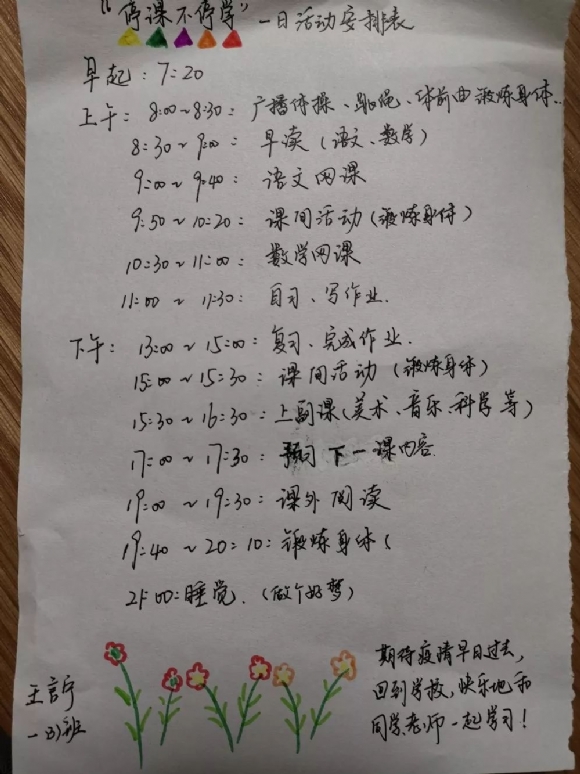 “停课不停学”一日活动安排表
早起：7:20
上午：8:00~8:30：广播体操、跳绳、体前曲锻炼身体..
8:30~9:00：早读（语文、数学）
9:00~9:40：语文网课
9:50~10:20：课间活动（锻炼身体）
10:30~11:00：数学网课
11:00~11:30：自习、写作业.
下午：13:00~15:00：复习、完成作业.
15:00~15:30：课间活动（锻炼身体）
15:30~16:30：上副课（美术、音乐、科学等）
17:00~17:30：预习下一课内容.
19:00~19:30：课外阅读
19:40~20:10：锻炼身体（
21:00：睡觉.（做个好梦）
期待疫情早日过去,
王言宁 回到学校,快乐地和
一(3)班 同学、老师一起学习！